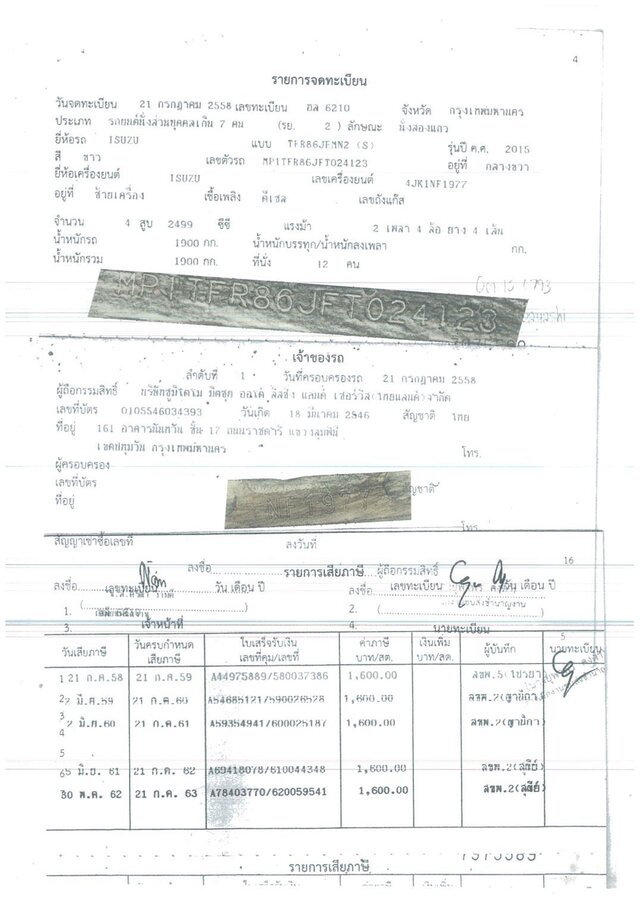 4
รายการจดทะเบียน
วันจดทะเบียน 21 กรกฎาคม 2558 เลขทะเบียน ฮล 6210 จังหวัด กรุงเทพมหานคร
ประเภท รถยนต์นั่งส่วนบุคคลเกิน 7 คน (รย. 2 ) ลักษณะ นั่งสองแถว
ยี่ห้อรถ ISUZU แบบ TFR86JFMN2 (S) รุ่นปี ค.ศ. 2015
สี ขาว เลขตัวรถ MP1TFR86JFT024123 อยู่ที่ กลางขวา
ยี่ห้อเครื่องยนต์ ISUZU เลขเครื่องยนต์ 4JK1NF1977
อยู่ที่ ซ้ายเครื่อง เชื้อเพลิง ดีเซล เลขถังแก๊ส
จำนวน 4 สูบ 2499 ซีซี แรงม้า 2 เพลา 4 ล้อ ยาง 4 เส้น
น้ำหนักรถ 1900 กก. น้ำหนักบรรทุก/น้ำหนักลงเพลา กก.
น้ำหนักรวม 1900 กก. ที่นั่ง 12 คน
MP1TFR86JFT024123
เจ้าของรถ
ลำดับที่ 1 วันที่ครอบครองรถ 21 กรกฎาคม 2558
ผู้ถือกรรมสิทธิ์ บริษัทซูมิโตโม มิตซุย ออโต้ ลิสซิ่ง แอนด์ เซอร์วิส(ไทยแลนด์)จำกัด
เลขที่บัตร 0105546034393 วันเกิด 18 มีนาคม 2546 สัญชาติ ไทย
ที่อยู่ 161 อาคารนันทวัน ชั้น 17 ถนนราชดำริ แขวงลุมพินี
เขตปทุมวัน กรุงเทพมหานคร โทร.
ผู้ครอบครอง
เลขที่บัตร สัญชาติ
ที่อยู่
โทร.
สัญญาเช่าซื้อเลขที่ ลงวันที่
16
ลงชื่อ รายการเสียภาษี ผู้ถือกรรมสิทธิ์
ลงชื่อ เลขทะเบียน วัน เดือน ปี ลงชื่อ เลขทะเบียน วัน เดือน ปี
1. 2.
3. เจ้าหน้าที่ 4. นายทะเบียน
5
วันเสียภาษี วันครบกำหนดเสียภาษี ใบเสร็จรับเงิน เลขที่คุม/เลขที่ ค่าภาษี บาท/สต. เงินเพิ่ม บาท/สต. ผู้บันทึก นายทะเบียน
1 21 ก.ค.58 21 ก.ค.59 A44975889/580037386 1,600.00
2 2 มิ.ค.59 21 ก.ค.60 A54685121/590026528 1,600.00 ลขพ.2(สุานิกา)
3 2 มิ.ย.60 21 ก.ค.61 A59354941/600025187 1,600.00 ลขพ.2(สุานิกา)
4
5
6 5 มิ.ย. 61 21 ก.ค. 62 A69418078/610044348 1,600.00 ลขพ.2(สุทีย์)
30 พ.ค. 62 21 ก.ค. 63 A78403770/620059541 1,600.00 ลขพ.2(สุทีย์)
1915589
รายการเสียภาษี